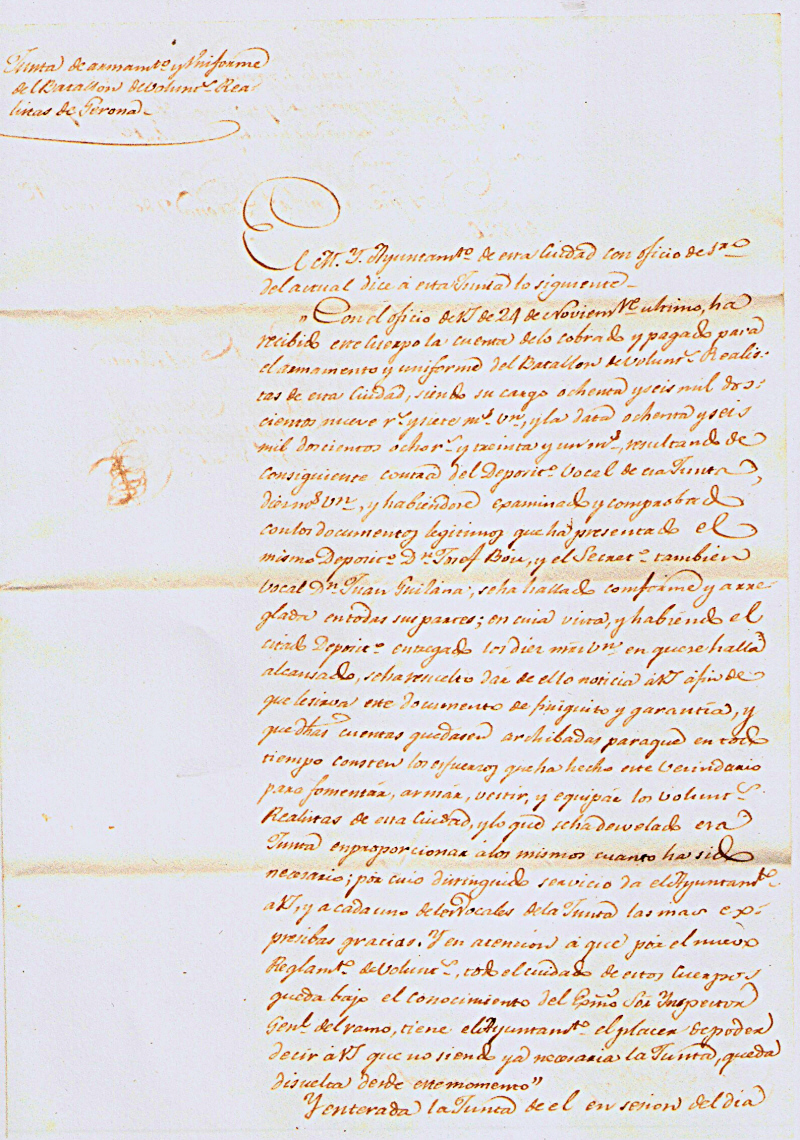 Junta de armamto. y Uniforme
del Batallon de volunts. Rea-
listas de Gerona.
El M. Y. Ayuntamto. de esta Ciudad con oficio de 1ro
del actual dice á esta Junta lo siguiente.
„Con el oficio de V. de 24 de Noviembre ultimo, ha
recibido este cuerpo la cuenta delo cobrado y pagado para
el armamento y uniforme del Batallon de volunts. Realis-
tas de esta Ciudad, siendo su cargo ochenta y seis mil dos-
cientos nueve rs. y siete ms. vn., y la data ochenta y seis
mil doscientos ocho rs. y treinta y un ms., resultando de
consiguiente contra del Deposito. vocal de esa Junta
diez ms. vn., y habiendose examinado y comprobado
con los documentos legitimos que ha presentado el
mismo Deposito. Dn. Josef Bou, y el Secreto. tambien
vocal Dn. Juan Guilana, seha hallado comforme y arre-
glada entodas sus partes; en cuia vista, y habiendo el
citado Deposito. entregado los diez mrs vn. en quese halla
alcansado, seha resuelto dár de ello noticia á V. áfin de
que lesirva este documento de finiquito y garantía, y
que dhas cuentas quedasen archibadas paraque en todo
tiempo consten los esfuerzos queha hecho este vecindario
para fomentár, armár, vestir, y equipár los volunts.
Realistas de esta Ciudad, y lo qued seha desvelado esta
Junta enproporcionar álos mismos cuanto ha sido
necesario; por cuio distinguido servicio da el Ayuntamto.
á V., y a cada uno delos Vocales de la Junta las mas ex-
presibas gracias. Y en atencion á que por el nuevo
Reglamto. de volunts., todo el cuidado de estos Cuerpos
queda bajo el conocimiento del Exmo Sor Ynspector
Genl. del ramo, tiene el Ayuntamto. el placer de poder
decir á V. que no siendo ya necesaria la Junta, queda
disuelta desde este momento”
Y enterada la Junta de el en sesion del dia